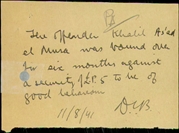 The offender Khalil As'ad
el Musa was bound over
for six months against
a security of £P.5 to be of
good behaviour
11/8/41